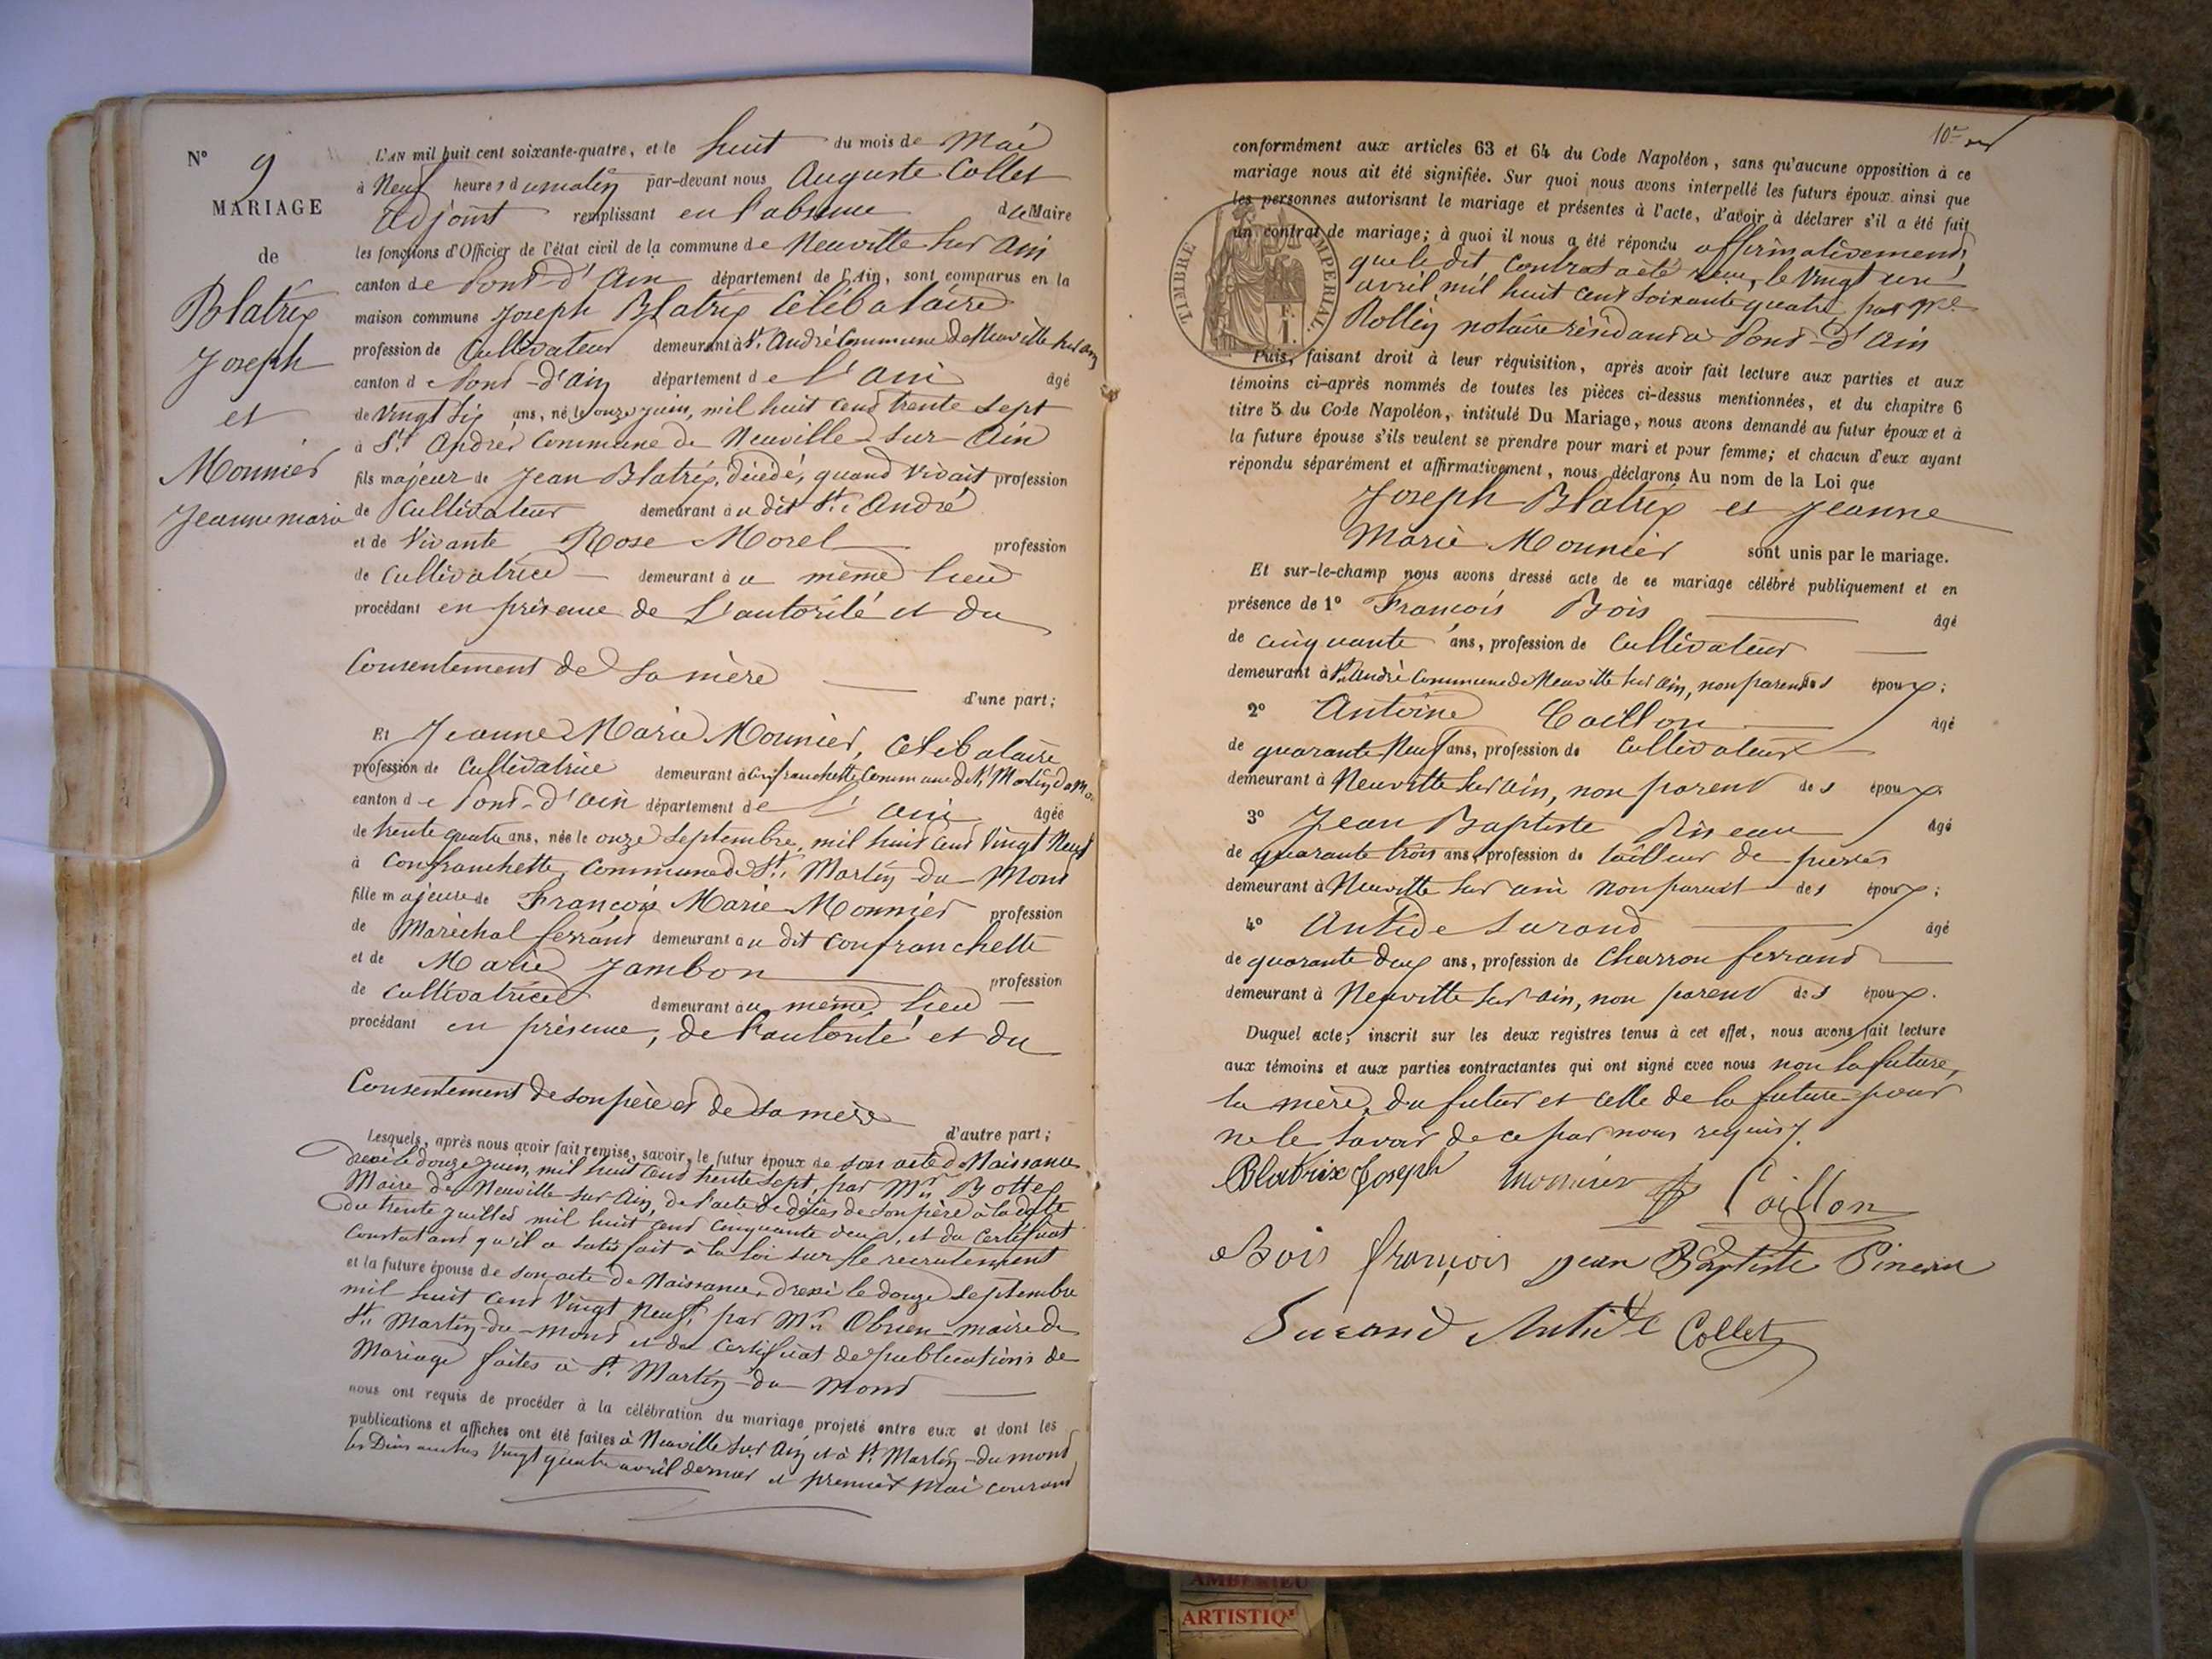 N° 9
MARIAGE
de
Blatrix
Joseph
et
Monnier
Jeanne marie
L'AN mil huit cent soixante-quatre, et le huit du mois de Mai
à Neuf heures du matin par-devant nous Auguste Collet
adjoint remplissant en l'absence du Maire
les fonctions d'Officier de l'état civil de la commune de Neuville sur Ain
canton de Pont-d'Ain département de l'Ain, sont comparus en la
maison commune Joseph Blatrix Célibataire
profession de Cultivateur demeurant à St. André Commune de Neuville sur ain
canton de Pont-d'Ain département de l'ain âgé
de Vingt six ans, né le onze juin, mil huit cent trente sept
à St. André Commune de Neuville sur Ain
fils majeur de Jean Blatrix, décédé, quand vivait profession
de Cultivateur demeurant au dit St. André
et de Vivante Rose Morel profession
de Cultivatrice demeurant au même lieu
procédant en présence de l'autorité et du
Consentement de sa mère
d'une part;
Et Jeanne Marie Monnier, Célibataire
profession de Cultivatrice demeurant à Confranchette Commune de St. Martin du Mo
canton de Pont-d'Ain département de l'ain âgée
de trente quatre ans, née le onze septembre, mil huit cent vingt Neuf
à Confranchette, Commune de St. Martin-du-Mont
fille majeure de François Marie Monnier profession
de Maréchal ferrant demeurant au dit Confranchette
et de Marie Jambon profession
de Cultivatrice demeurant au même lieu
procédant en présence, de l'autorité et du
Consentement de son père et de sa mère
d'autre part;
Lesquels, après nous avoir fait remise, savoir, le futur époux de son acte de Naissance
dressé le douze juin, mil huit cent trente sept par Mr. Bottex
Maire de Neuville-sur-Ain, de l'acte de décès de son père à la date
du trente juillet mil huit cent cinquante deux, et du Certificat
Constatant qu'il a satisfait à la loi sur le recrutement
et la future épouse de son acte de Naissance, dressé le douze septembre
mil huit cent Vingt Neuf, par Mr. Obrien maire de
St. Martin-du-mont et du Certificat de publications de
Mariage faites à St. Martin-du-Mont
nous ont requis de procéder à la célébration du mariage projeté entre eux et dont les
publications et affiches ont été faites à Neuville sur Ain et à St. Martin-du mont
les Dimanches Vingt quatre avril dernier et premier Mai courant
10e
conformément aux articles 63 et 64 du Code Napoléon, sans qu'aucune opposition à ce
mariage nous ait été signifiée. Sur quoi nous avons interpellé les futurs époux ainsi que
les personnes autorisant le mariage et présentes à l'acte, d'avoir à déclarer s'il a été fait
un contrat de mariage; à quoi il nous a été répondu affirmativement
que le dit Contrat a été reçu, le Vingt un
avril mil huit cent soixante quatre par Me
Rollin notaire résidant à Pont-d'Ain
TIMBRE IMPERIAL
Puis, faisant droit à leur réquisition, après avoir fait lecture aux parties et aux
témoins ci-après nommés de toutes les pièces ci-dessus mentionnées, et du chapitre 6
titre 5 du Code Napoléon, intitulé Du Mariage, nous avons demandé au futur époux et à
la future épouse s'ils veulent se prendre pour mari et pour femme; et chacun d'eux ayant
répondu séparément et affirmativement, nous déclarons Au nom de la Loi que
Joseph Blatrix et Jeanne
Marie Monnier sont unis par le mariage.
Et sur-le-champ nous avons dressé acte de ce mariage célébré publiquement et en
présence de 1° François Bois âgé
de cinquante ans, profession de Cultivateur
demeurant à St. André Commune de Neuville sur Ain, non parent des époux;
2° Antoine Caillon âgé
de quarante Neuf ans, profession de Cultivateur
demeurant à Neuville sur ain, non parent des époux.
3° Jean Baptiste Pineau âgé
de quarante trois ans, profession de tailleur de pierres
demeurant à Neuville sur ain non parent des époux;
4° Antide Durand âgé
de quarante deux ans, profession de Charron ferrant
demeurant à Neuville sur ain, non parent des époux.
Duquel acte, inscrit sur les deux registres tenus à cet effet, nous avons fait lecture
aux témoins et aux parties contractantes qui ont signé avec nous non la future,
la mère, du futur et celle de la future pour
ne le savoir de ce par nous requis.
Blatrix Joseph Monnier Caillon
Bois françois jean Baptiste Pineau
Durand Antide Collet
AMBERIEU
ARTISTIQ